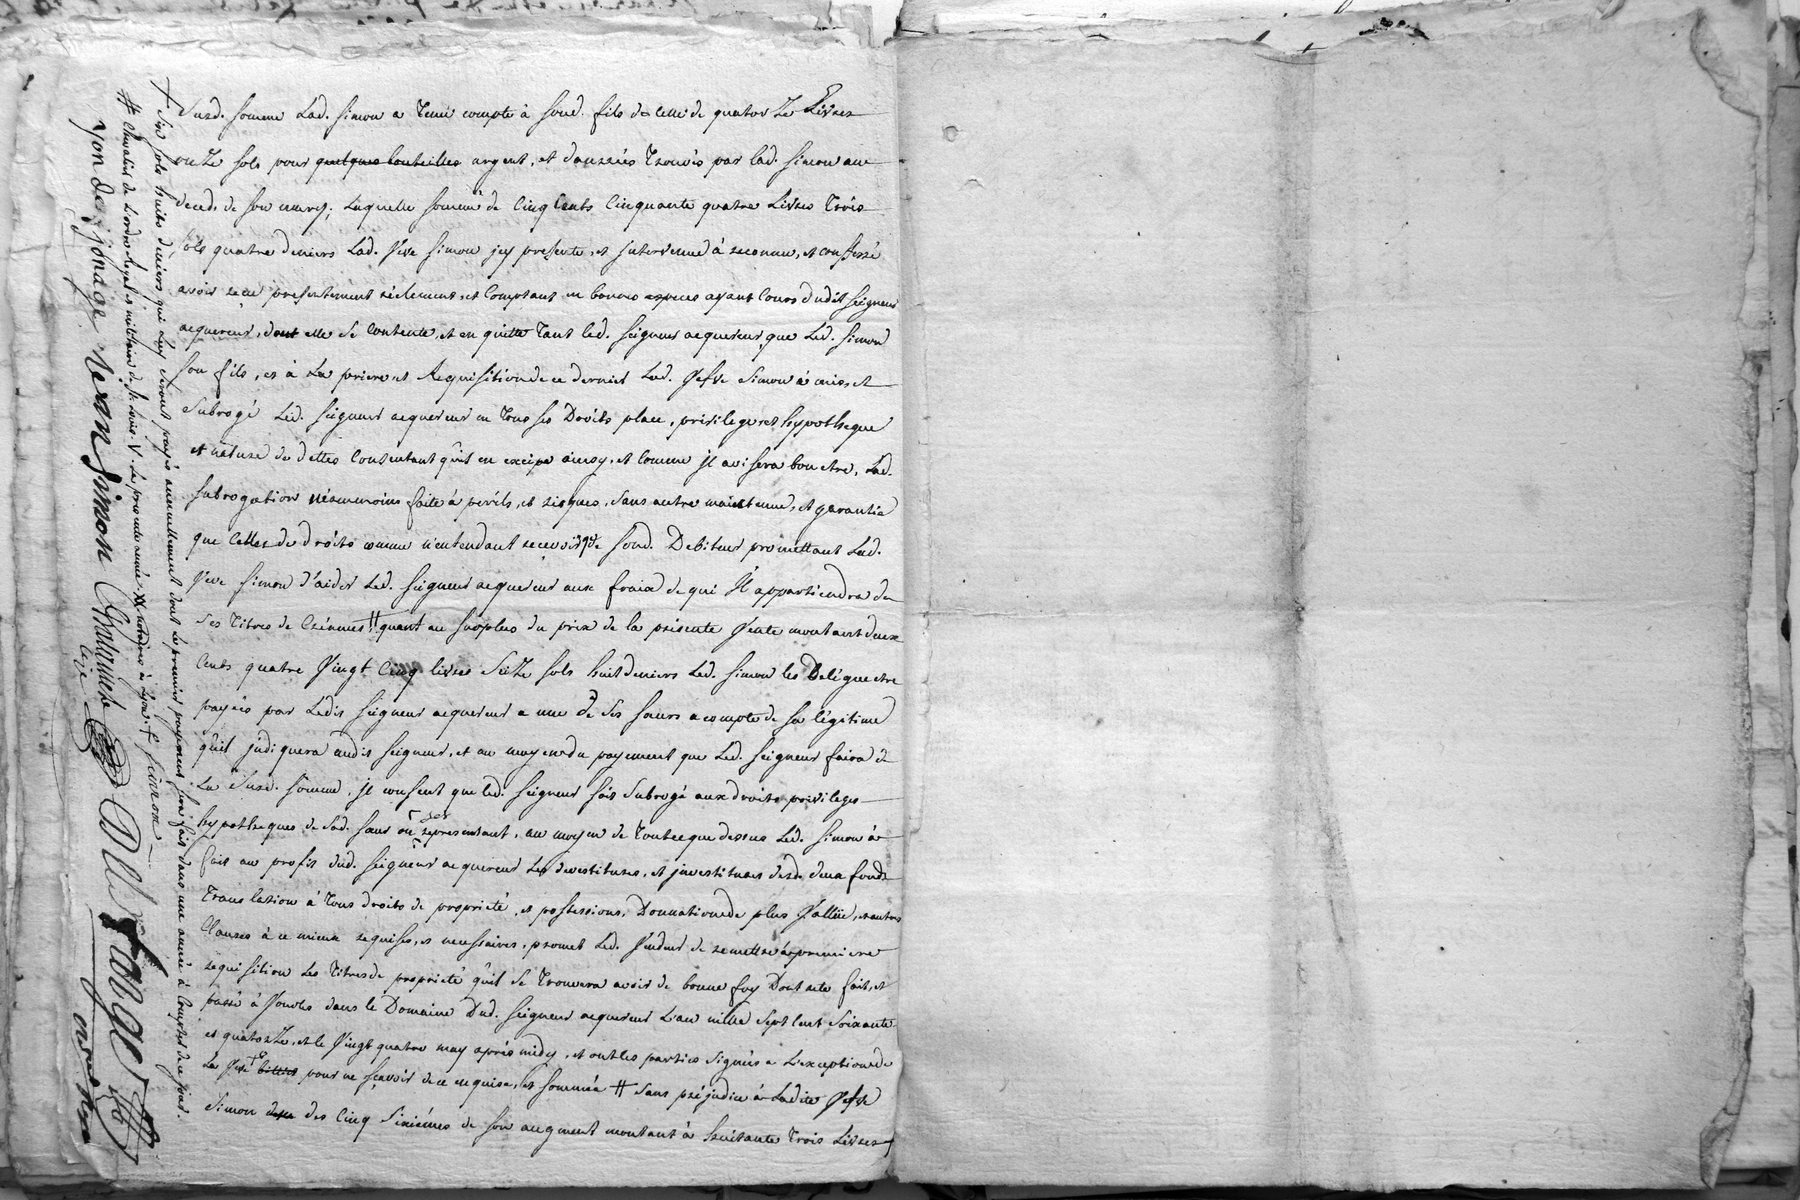 Susd. somme Lad. Simon a tenu compte à sond. fils de celle de quatorze Livres
onze sols pour quelques bouteilles argent, et danrées trouvés par lad. Simon au
deceds de son mary; Laquelle somme de Cinq Cents Cinquante quatre Livres trois
sols quatre deniers Lad. Veve Simon jcy presente, et Intervenue à reconnu, et confessé
avoir réçu presentement réelement, et Comptant en bonnes especes ayant Cours dudit seigneur
acquereur, dont elle se Contente, et en quitte tant led. seigneur acquereur que Led. Simon
son fils, et à La priere et Requisition de ce dernier Lad. Vefve Simon à mis, et
Subrogé Led. seigneur acquereur en tous ses Droits place, privilege et hypotheque
et nature de dettes Consentant qu'il en excipe ainsy, et Comme jl avisera bon etre, Lad.
subrogation néammoins faite à perils, et risques, sans autre maintenue, et garantie
que Celles de droits comme n'entendant recevoir que de sond. Debiteur promettant Lad.
Veve Simon d'aider Led. seigneur acquereur aux fraix de qui Il appartiendra de
ses titres de Créances # quant au surplus du prix de la présente Vente montant deux
Cents quatre Vingt Cinq livres Seize sols huit deniers Led. Simon les Delégue etre
payées par Ledit seigneur acquereur a une de ses sœurs a compte de sa légitime
qu'il jndiquera audit seigneur, et au moyen du payement que Led. seigneur faira de
La Susd. somme, jl consent que led. seigneur soit Subrogé aux droits privileges
hypotheques de sad. sœur ou ses représentant, au moyen de tout ce que dessus Led. Simon à
fait au profit dud. seigneur acquereur Les devestitures, et jnvestitures desd. deux fonds
translation à tous droits de propriété, et possessions, Donnation de plus Vallüe, et autres
Clauses à ce mieux requises, et necessaires, promet Led. Vendeur de remettre à premiere
requisition Les titres de propriété qu'il se trouvera avoir de bonne foy Dont acte fait, et
passé à dans le Domaine Dud. seigneur acquereur L'an mille sept cent soixante
et quatorze, et le Vingt quatre may après midy, et ont les parties signées a L'exception de
La Veve pour ne sçavoir de ce enquise, et sommée # sans préjudice à Ladite Vefve
Simon des Cinq Sixiémes de son augment montant à huitante trois Livres
+ six sols huits deniers qui Luy seront payés annuellement dont Le premier payement sera fait dans une année à Compter de ce jour.
# Chevalier de L'ordre Royal et militaire de St. Louis. notaires à Lyon. + Simon
yon de jonage Jean Simon